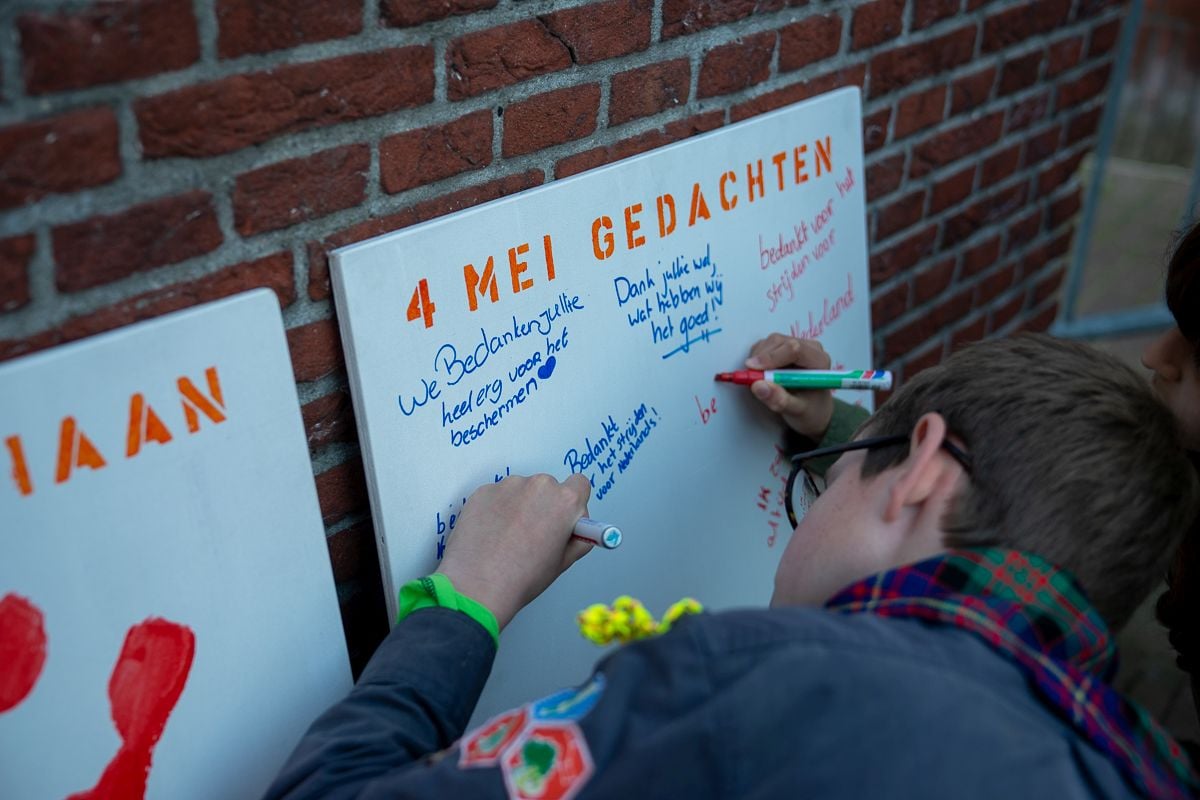 IAAN
4 MEI GEDACHTEN
We Bedanken jullie
heel erg voor het
beschermen
Dank jullie wel,
wat hebben wij
het goed!
bedankt voor het
strijden voor
Nederland
be
Bedankt
het strijden
voor Nederlands!
ik